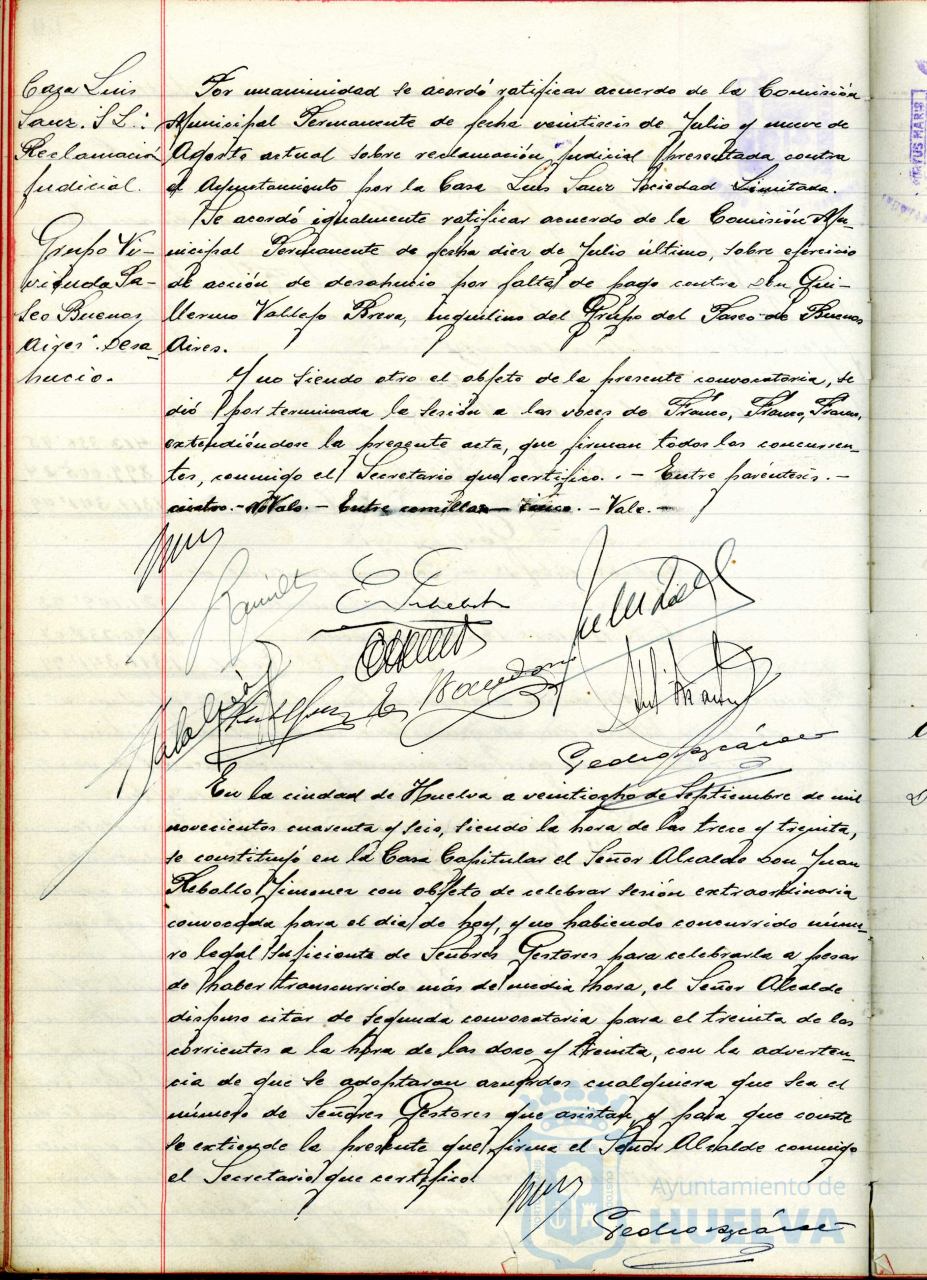 Casa Luis
Sanz. S.L.:
Reclamación
judicial.
Por unanimidad se acordó ratificar acuerdo de la Comisión
Municipal Permanente de fecha veintiseis de Julio y nueve de
Agosto actual sobre reclamación judicial presentada contra
el Ayuntamiento por la Casa Luis Sanz Sociedad Limitada.
Grupo Vi-
vienda Pa-
seo Buenos
Aires". Desa-
hucio.
Se acordó igualmente ratificar acuerdo de la Comisión Mu-
nicipal Permanente de fecha diez de Julio último, sobre ejercicio
de acción de desahucio por falta de pago contra Don Gui-
llermo Vallejo Breva, inquilino del Grupo del Paseo de Buenos
Aires.
Y no siendo otro el objeto de la presente convocatoria, se
dió por terminada la sesión a las voces de Franco, Franco, Franco,
extendiéndose la presente acta, que firman todos los concurren-
tes, conmigo el Secretario que certifico. - Entre paréntesis. -
cuatro. - No Vale. - Entre comillas - cinco. - Vale. -
Pedro
En la ciudad de Huelva a veintiocho de Septiembre de mil
novecientos cuarenta y seis, siendo la hora de las trece y treinta,
se constituyó en la Casa Capitular el Señor Alcalde Don Juan
Rebollo Jimenez con objeto de celebrar sesión extraordinaria
convocada para el dia de hoy, y no habiendo concurrido núme-
ro legal suficiente de Señores Gestores para celebrarla a pesar
de haber transcurrido más de media hora, el Señor Alcalde
dispuso citar de segunda convocatoria para el treinta de los
corrientes a la hora de las doce y treinta, con la adverten-
cia de que se adoptaran acuerdos cualquiera que sea el
número de Señores Gestores que asistan, y para que conste
se extiende la presente que firma el Señor Alcalde conmigo
el Secretario que certifico.
Pedro
Ayuntamiento de
HUELVA